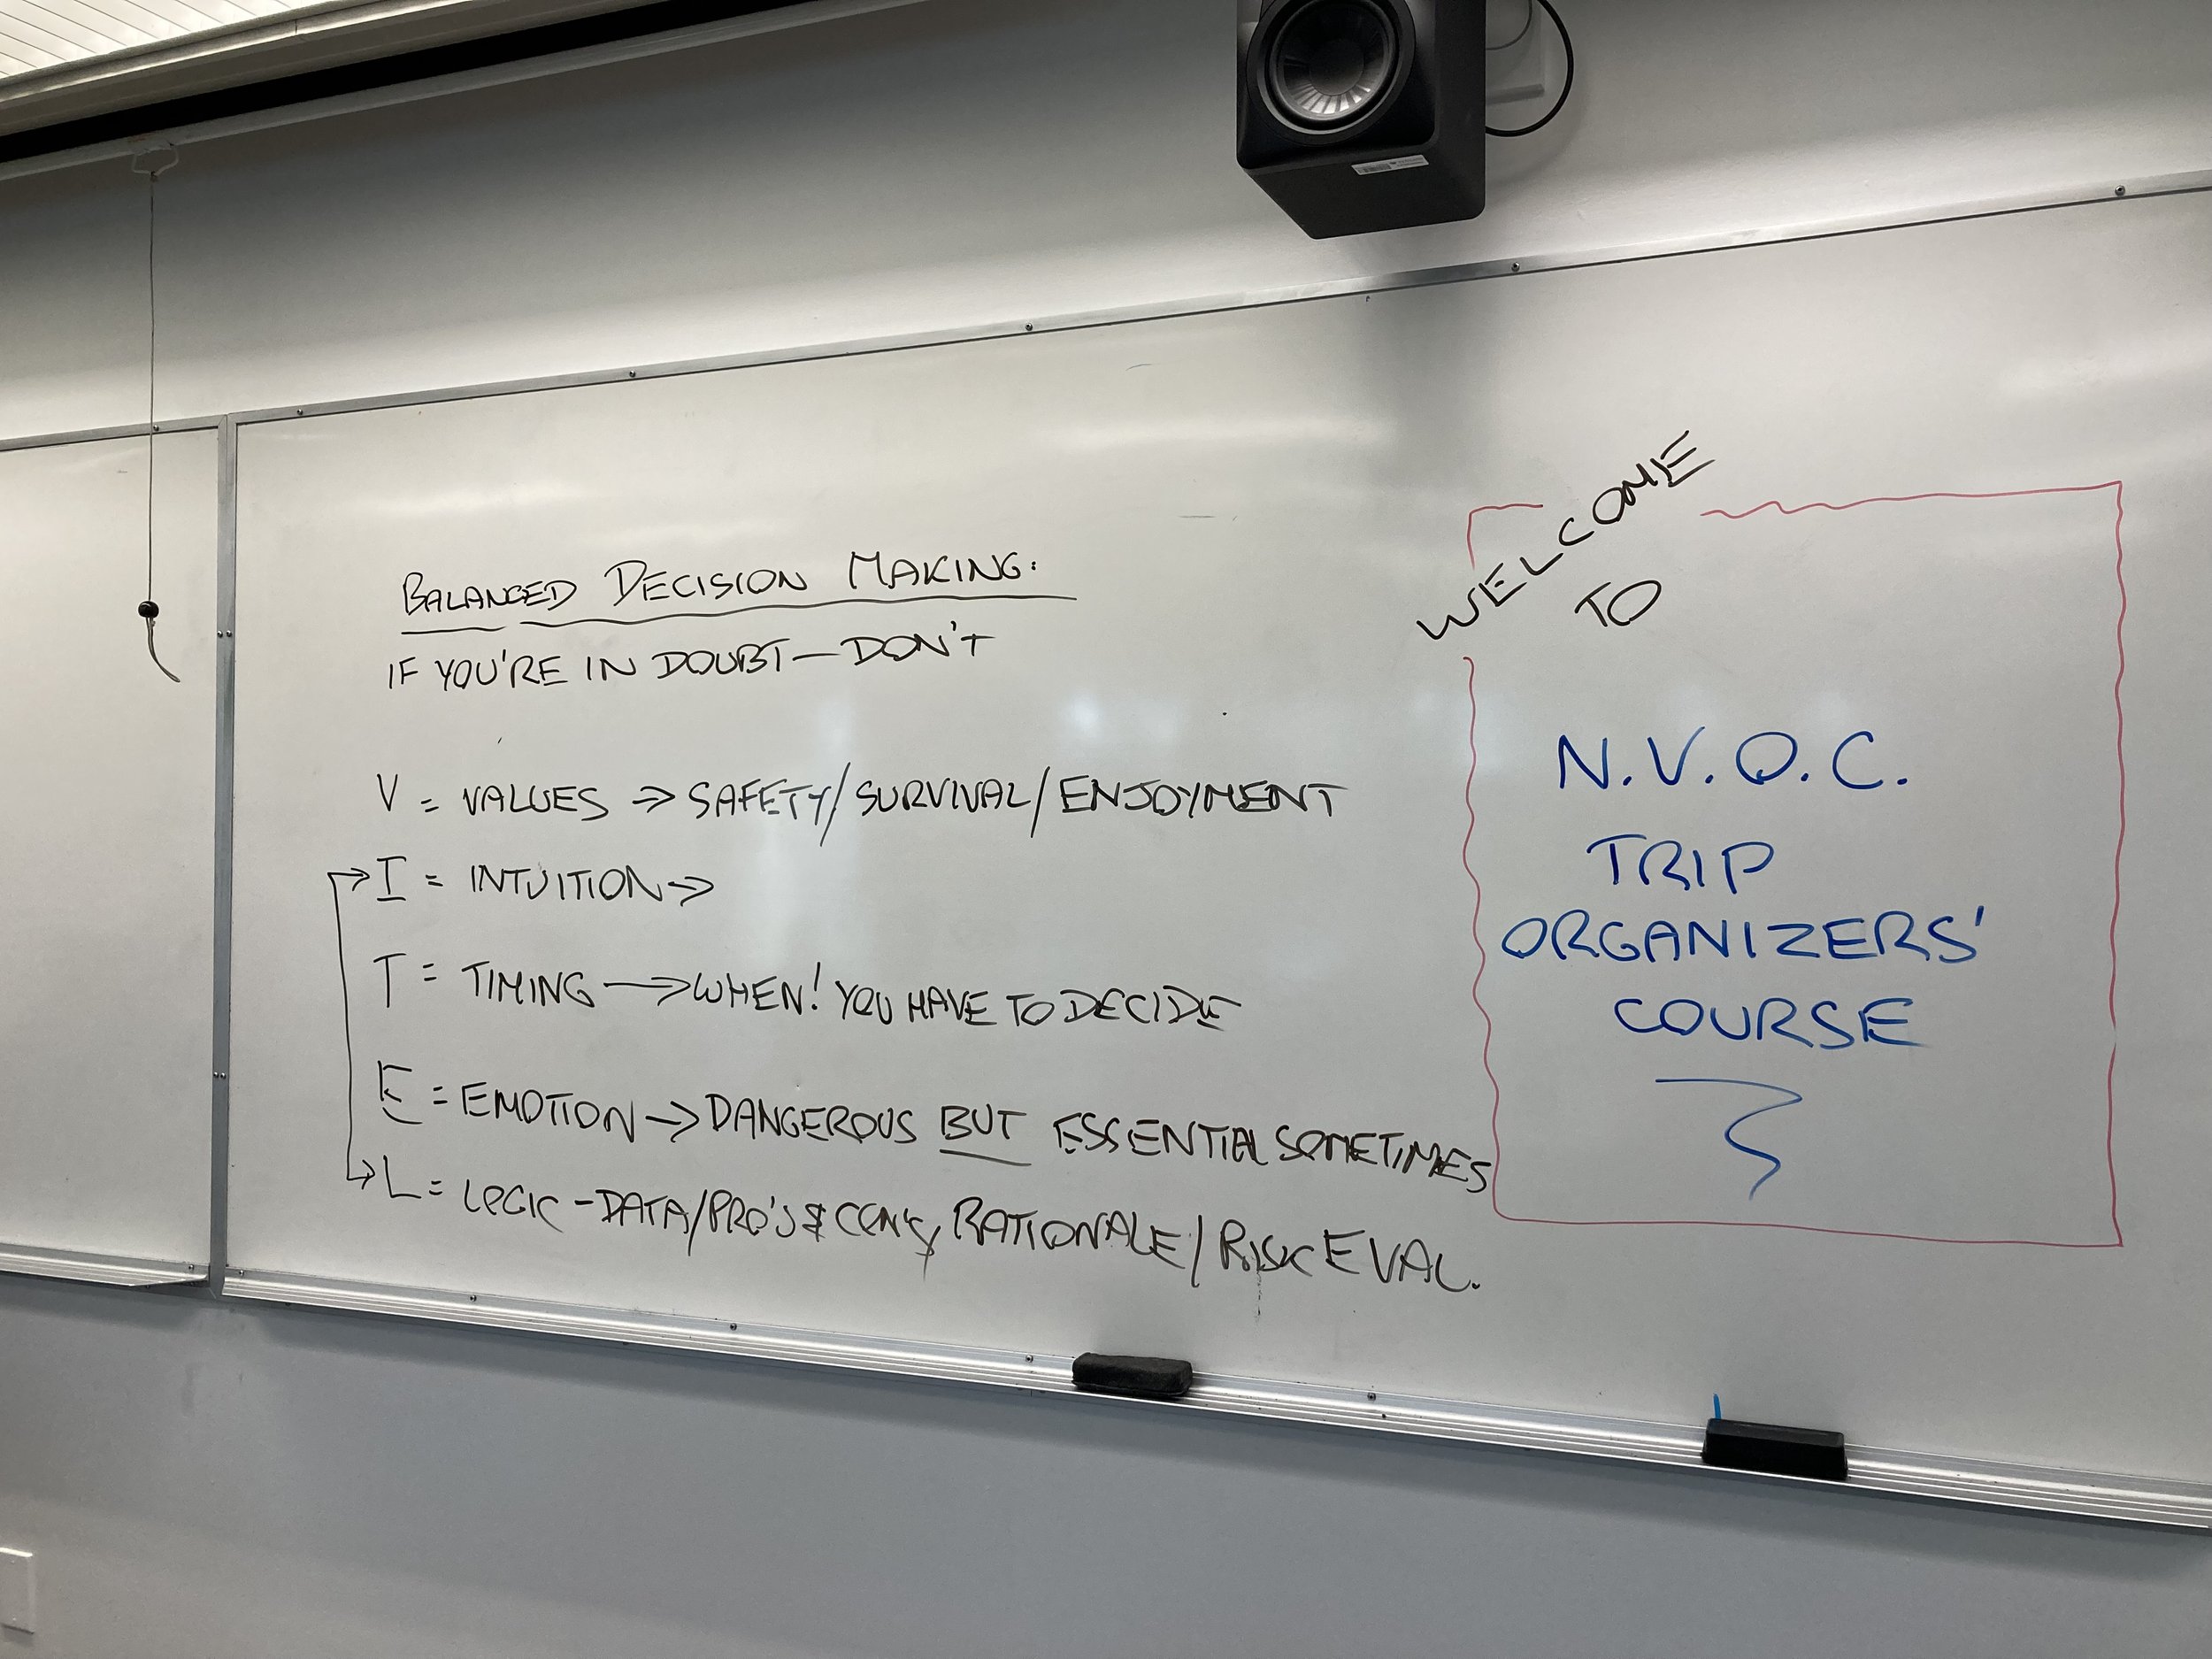 BALANCED DECISION MAKING:
IF YOU'RE IN DOUBT — DON'T
V = VALUES → SAFETY/SURVIVAL/ENJOYMENT
→ I = INTUITION →
T = TIMING → WHEN! YOU HAVE TO DECIDE
E = EMOTION → DANGEROUS BUT ESSENTIAL SOMETIMES
→ L = LOGIC - DATA/PRO'S & CON'S/ RATIONALE/RISK EVAL.
WELCOME
TO
N.V.O.C.
TRIP
ORGANIZERS'
COURSE